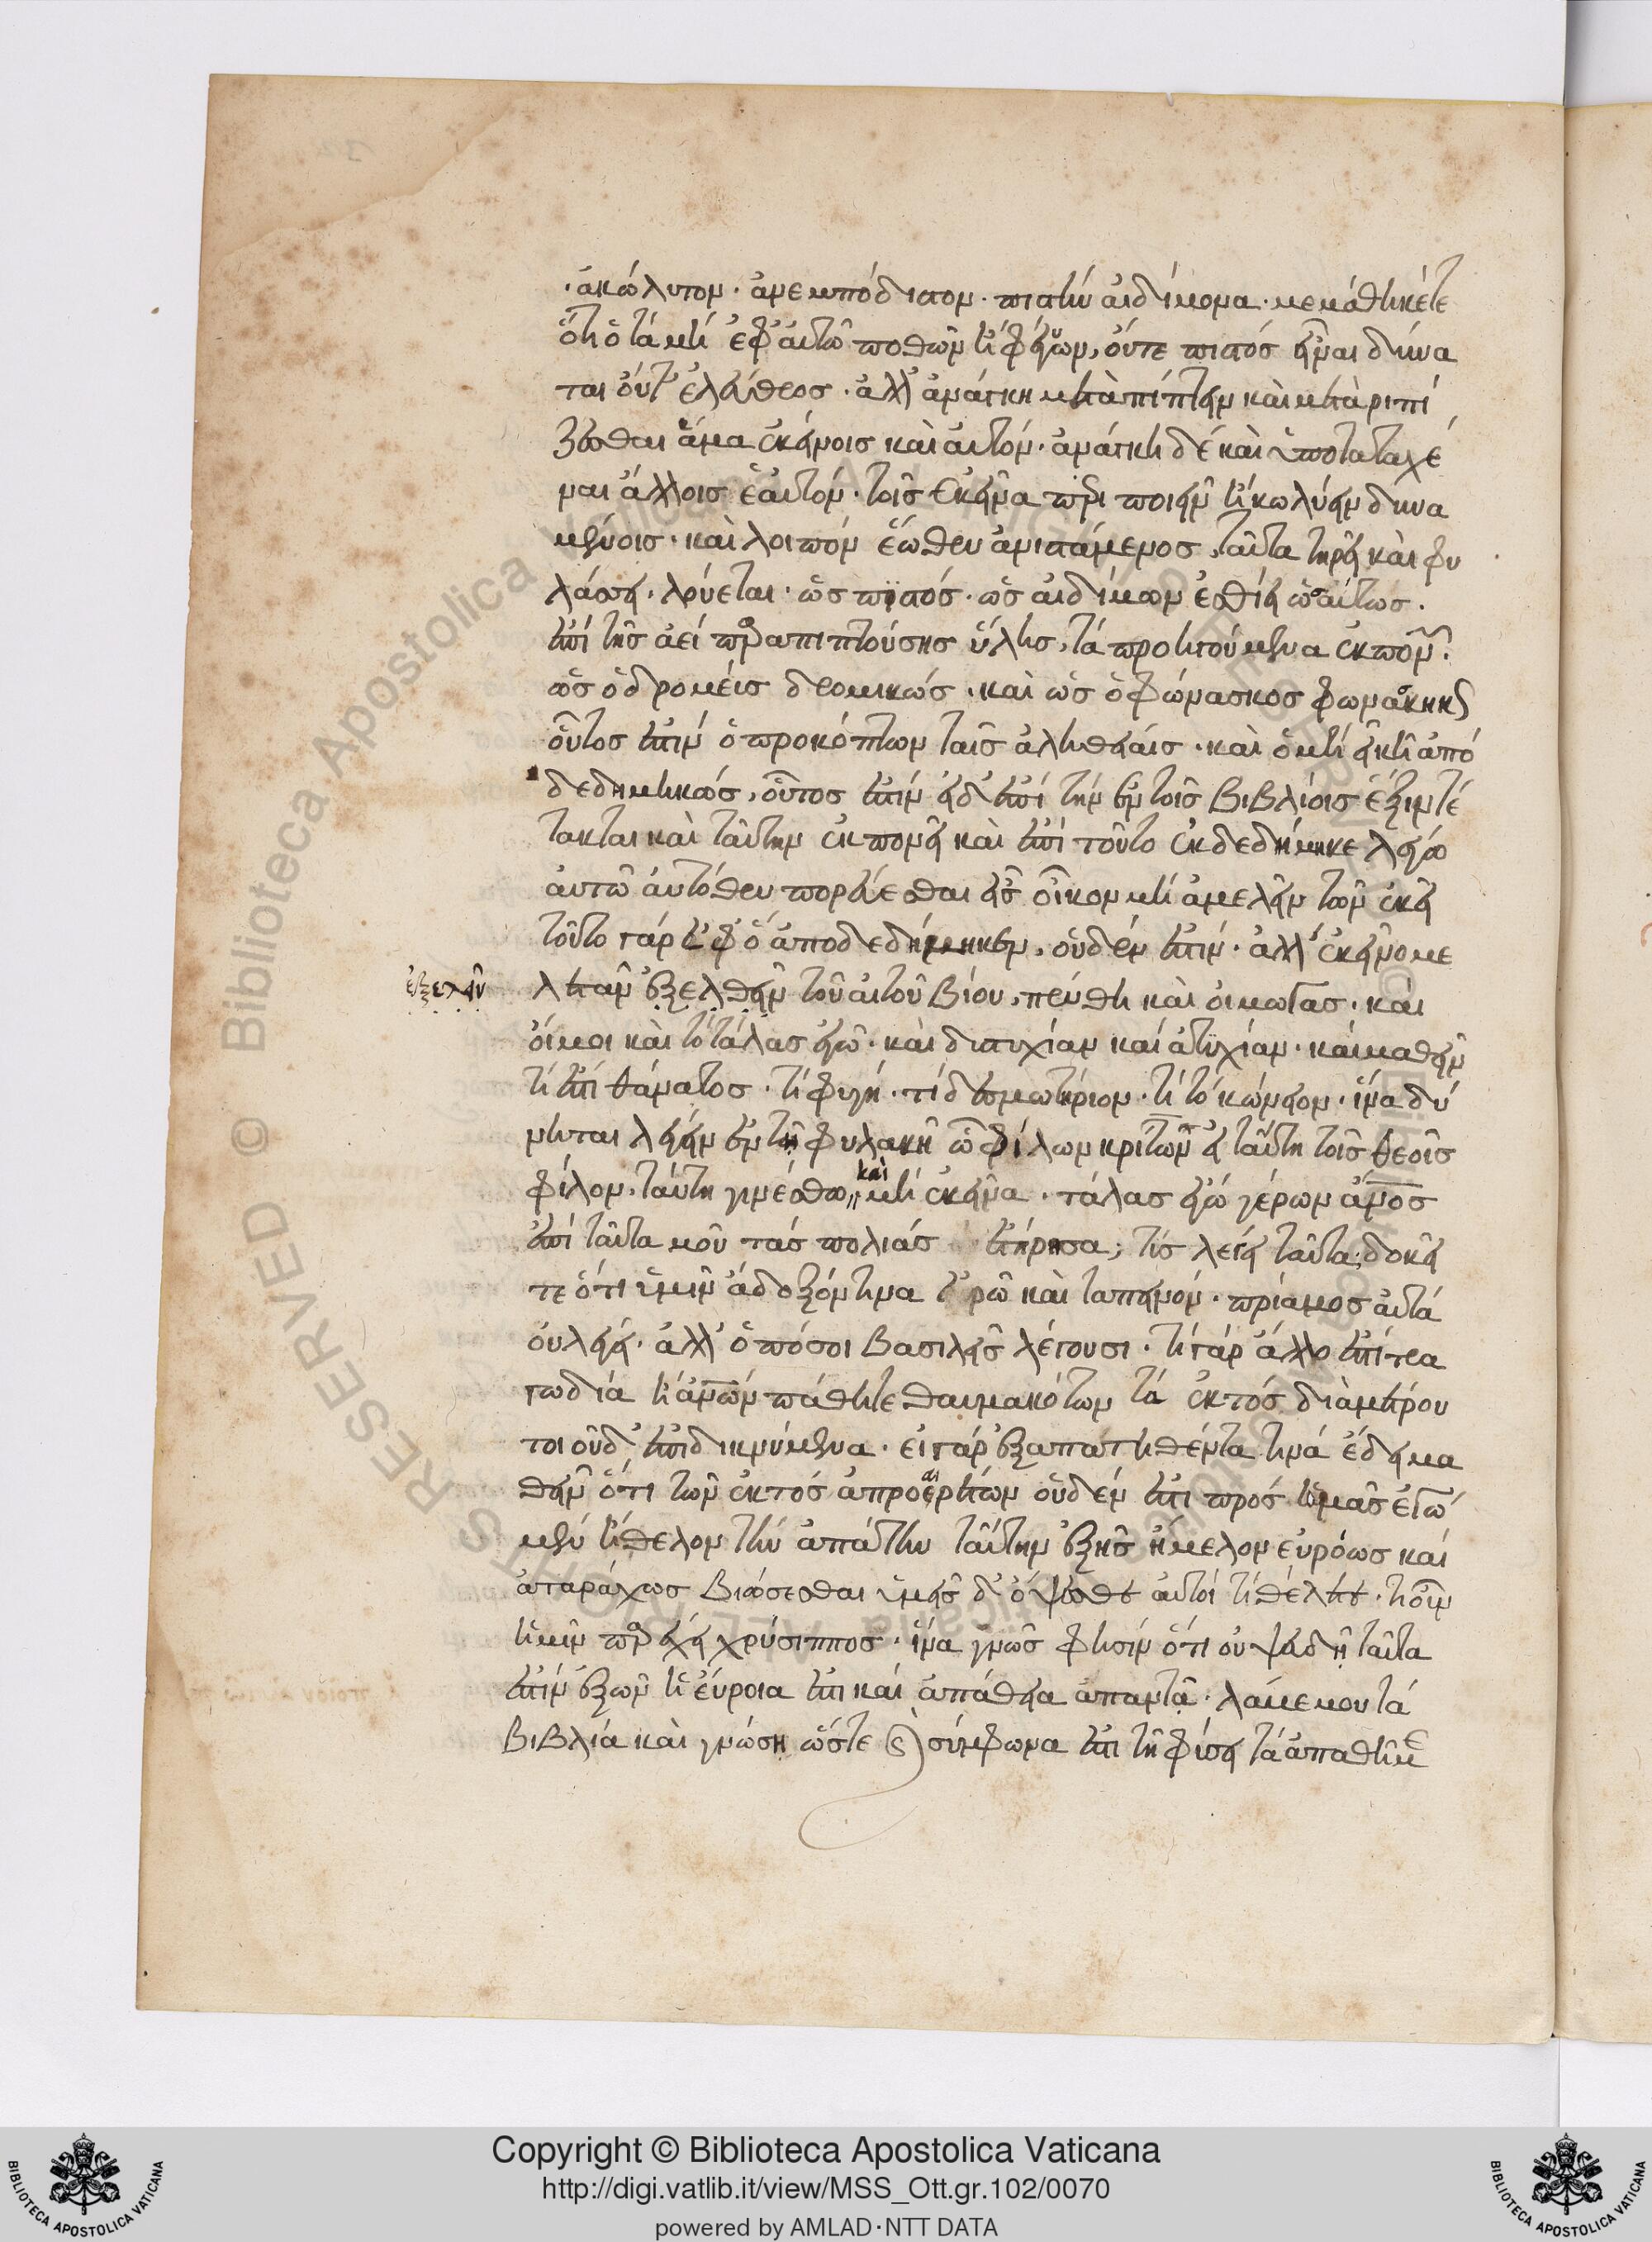 ἀκώλυτον · ἀνεμπόδιστον · πιστὴν αἰδήμονα · μεμάθηκέ τε
ὅτι ὁ τὰ μὴ ἐφ' αὑτῷ ποθῶν ἢ φεύγων, οὔτε πιστὸς εἶναι δύνα
ται οὔτ' ἐλεύθερος · ἀλλ' ἀνάγκη μεταπίπτειν καὶ μεταριπί
ζεσθαι ἅμα ἐκείνοις καὶ αὐτόν · ἀνάγκη δὲ καὶ ὑποτεταχέ
ναι ἄλλοις ἑαυτόν · τοῖς ἐκεῖνα περιποιεῖν ἢ κωλύειν δυνα
μένοις · καὶ λοιπὸν ἕωθεν ἀνιστάμενος, ταῦτα τηρεῖ καὶ φυ
λάσσει · λούεται · ὡς πιστός · ὡς αἰδήμων ἐσθίει ὡσαύτως ·
ἐπὶ τῆς ἀεὶ παραπιπτούσης ὕλης, τὰ προηγούμενα ἐκπονῶν ·
ὡς ὁ δρομεὺς δρομικῶς · καὶ ὡς ὁ φώνασκος φωνασκικῶς
οὗτός ἐστιν ὁ προκόπτων ταῖς ἀληθείαις · καὶ ὁ μὴ εἰκῆ ἀπο
δεδημηκώς, οὗτός ἐστιν εἰ δ' ἐπὶ τὴν ἐν τοῖς βιβλίοις ἕξιν τέ
τακται καὶ ταύτην ἐκπονεῖ καὶ ἐπὶ τοῦτο ἐκδεδήμηκε λέγω
αὐτῷ αὐτόθεν πορεύεσθαι εἰς οἶκον μὴ ἀμελεῖν τῶν ἐκεῖ
τοῦτο γὰρ ἐφ' ὃ ἀποδεδήμηκεν, οὐδέν ἐστιν · ἀλλ' ἐκεῖνο με
ἐξελεῖν
λετᾶν ἐξελθεῖν τοῦ αὑτοῦ βίου, πένθη καὶ οἰμωγὰς · καὶ
οἴμοι καὶ τὸ τάλας ἐγώ · καὶ δυστυχίαν καὶ ἀτυχίαν · καὶ μαθεῖν
τί ἐστι θάνατος · τί φυγή · τί δεσμωτήριον · τί τὸ κώνειον · ἵνα δύ
νηται λέγειν ἐν τῇ φυλακῇ ὦ φίλων κρίτων εἰ ταύτῃ τοῖς θεοῖς
φίλον, ταύτῃ γινέσθω, καὶ μὴ ἐκεῖνα · τάλας ἐγὼ γέρων ἄνος
ἐπὶ ταῦτα μοῦ τὰς πολιὰς ἐτήρησα; τίς λέγει ταῦτα; δοκεῖ
τε ὅτι ὑμῖν ἄδοξόν τινα ἐρῶ καὶ ταπεινόν · πρίαμος αὐτὰ
οὐ λέγει · ἀλλ' ὁπόσοι βασιλεῖς λέγουσι · τί γάρ ἄλλο ἐστὶ τρα
γωδία ἢ ἀνων πάθη τεθαυμακότων τὰ ἐκτὸς διὰ μέτρου
τοιοῦδ' ἐπιδεικνύμενα · εἰ γὰρ ἐξαπατηθέντα τινὰ ἔδει μα
θεῖν ὅτι τῶν ἐκτὸς ἀπροαιρέτων οὐδέν ἐστι πρὸς ἡμᾶς ἐγὼ
μὲν ἤθελον τὴν ἀπάτην ταύτην ἐξ ἧς ἤμελον εὐρόως καὶ
ἀταράχως βιώσεσθαι ὑμεῖς δ' ὄψεσθε αὐτοὶ τί θέλετε · τί οὖν
ἡμῖν παρέχει χρύσιππος · ἵνα γνῷς φησὶν ὅτι οὐ ψευδῆ ταῦτα
ἐστὶν ἐξ ὧν ἡ εὔροια ἐστι καὶ ἀπάθεια ἀπαντᾷ · λάβε μου τὰ
βιβλία καὶ γνώσῃ ὥστε καὶ σύμφωνα ἐστι τῇ φύσει τὰ ἀπαθῆ με
Copyright © Biblioteca Apostolica Vaticana
http://digi.vatlib.it/view/MSS_Ott.gr.102/0070
powered by AMLAD·NTT DATA